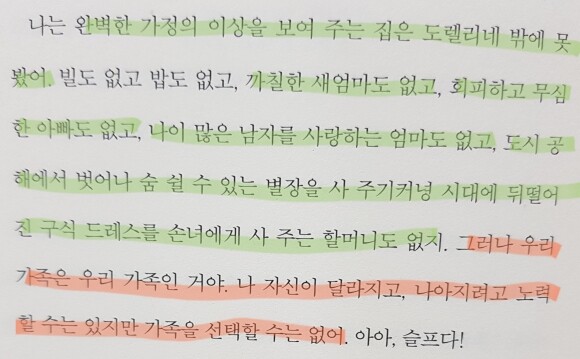 나는 완벽한 가정의 이상을 보여 주는 집은 도렐리네 밖에 못
봤어. 빌도 없고 밥도 없고, 까칠한 새엄마도 없고, 회피하고 무심
한 아빠도 없고, 나이 많은 남자를 사랑하는 엄마도 없고, 도시 공
해에서 벗어나 숨 쉴 수 있는 별장을 사 주기커녕 시대에 뒤떨어
진 구식 드레스를 손녀에게 사 주는 할머니도 없지. 그러나 우리
가족은 우리 가족인 거야. 나 자신이 달라지고, 나아지려고 노력
할 수는 있지만 가족을 선택할 수는 없어. 아아, 슬프다!